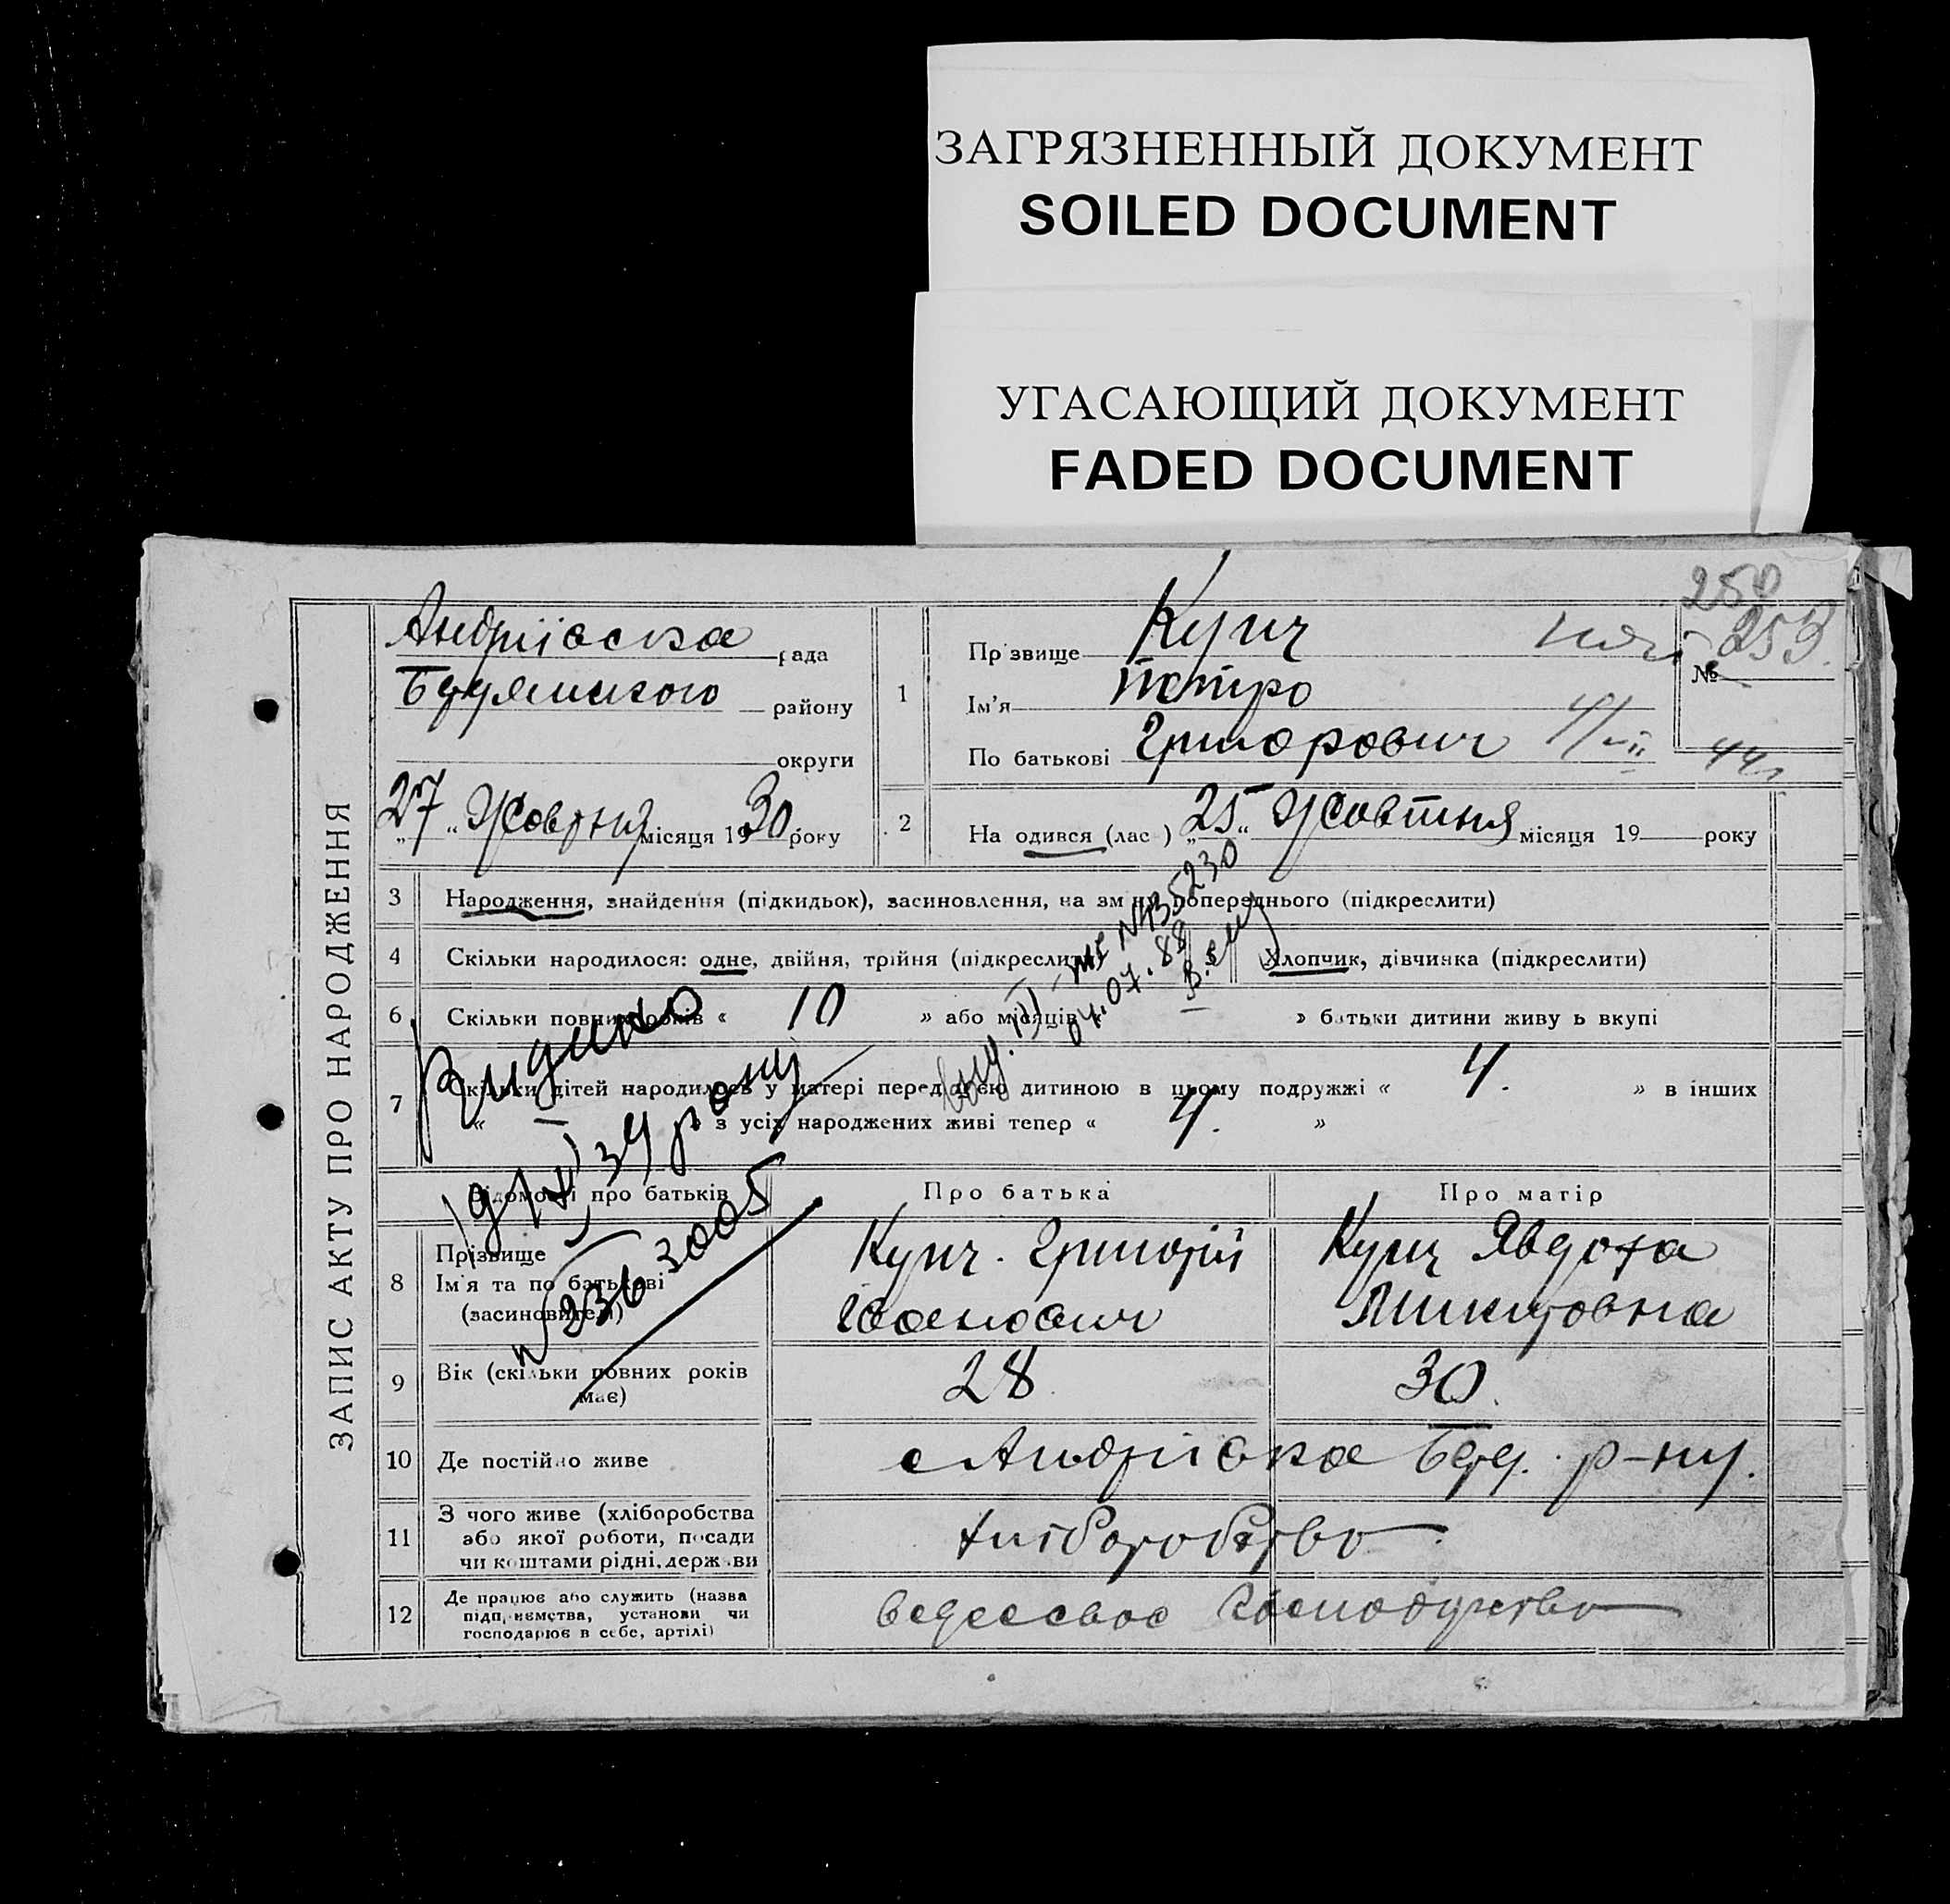 ЗАГРЯЗНЕННЫЙ ДОКУМЕНТ
SOILED DOCUMENT
УГАСАЮЩИЙ ДОКУМЕНТ
FADED DOCUMENT
ЗАПИС АКТУ ПРО НАРОДЖЕННЯ
250
253
Андріівська рада
района
округи
"27" Жовтня місяця 1930 року
1
Прізвище
Ім'я Петро
По батькові Григорович
№
44
2
На одився (лас ) "25" Жовтня місяця 19 року
3 Народження, знайдення (підкидьок), засиновлення, на зм ну попереднього (підкреслити)
4 Скільки народилося: одне, двійня, трійня (підкреслити)
Хлопчик, дівчинка (підкреслити)
6 Скільки повних років « 10 » або місяців « » батьки дитини живу ь вкупі
7 Скільки дітей народилось у матері перед цією дитиною в цьому подружжі « 4. » в інших
« » з усіх народжених живі тепер « 4. »
№435230
04.07.88
Видано
34 року
236 30005
Відомості про батьків
Про батька
Про матір
8 Прізвище
Ім'я та по батькові
(засиновителі)
Григорій
Іванович
Явдоха
Микитовна
9 Вік (скільки повних років має)
28
30.
10 Де постійно живе
с Андрівка Буд. р-ну.
11 З чого живе (хліборобства
або якої роботи, посади
чи коштами рідні, держ ви
хліборобство
12 Де працює або служить (назва
підп, иємства, установи чи
господарює в себе, артілі)
веде своє господарство